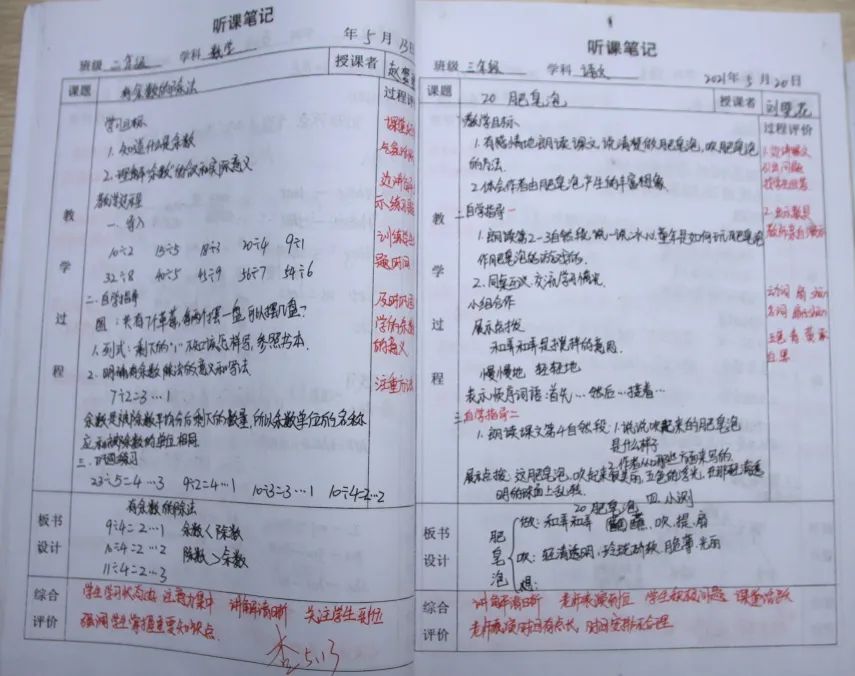 听课笔记
年 5 月 13日
班级 二年级 学科 数学 授课者
课题 有余数的除法 过程评
学习目标
1. 知道什么是余数
2. 理解"余数"的含义和实际意义
教学过程
一. 导入
10÷2 15÷5 18÷3 20÷4 9÷1
32÷8 40÷5 45÷9 56÷7 54÷6
二. 自学指导
图: 共有7个草莓, 每两个摆一盘, 可以摆几盘?
1. 列式: 剩下的"1"不知该怎样写, 参照书本.
2. 明确有余数除法的意义和写法
7÷2=3…1
余数是被除数平均分后剩下的数量, 所以余数单位的名称
应和被除数的单位相同.
三. 巩固练习
23÷5=4…3 9÷2=4…1 10÷3=3…1 10÷4=2…2
教学过程
课堂
边讲解
示练习题
训练学生
题时间
及时巩固
学的余数
的意义
注重方法
板书设计
有余数的除法
9÷4=2…1 余数<除数
10÷4=2…2 除数>余数
11÷4=2…3
综合评价
学生学习状态好 注意力集中 讲解清晰 关注学生到位
强调学生掌握重要知识点.
李 5.13
听课笔记
班级 三年级 学科 语文 2021年 5 月 20日
课题 20 肥皂泡 授课者
过程评价
教学目标
1. 有感情地朗读课文, 说清楚做肥皂泡, 吹肥皂泡
的方法.
2. 体会作者由肥皂泡产生的丰富想象.
二自学指导一
1. 朗读第2-3自然段, 说一说冰心童年是如何玩肥皂泡
作肥皂泡的
2. 同桌互议, 交流学习情况.
小组合作
展示点拨
和弄和弄是搅拌的意思.
慢慢地 轻轻地
表示顺序词语: 首先…然后…接着…
三自学指导二
1. 朗读课文第4自然段: 1 说说吹起来的肥皂泡
是什么样子
作者从哪些方面来写的
展示点拨 这肥皂泡, 吹起来很美丽, 五色的浮光, 在那轻清透
明的球面上乱转.
四. 小测
教学过程
引出问题
找学生回答
2. 出示教具
教师亲自演示
动词 扇
名词 扇
板书设计
20 肥皂泡
肥皂泡
做: 和弄和弄 蘸, 吹, 提, 扇
吹: 轻清透明, 玲珑娇软 脆薄, 光丽
想:
综合评价
讲解清晰 老师表演到位 学生积极问题 课堂活跃
老师表演时间有点长, 时间安排不合理